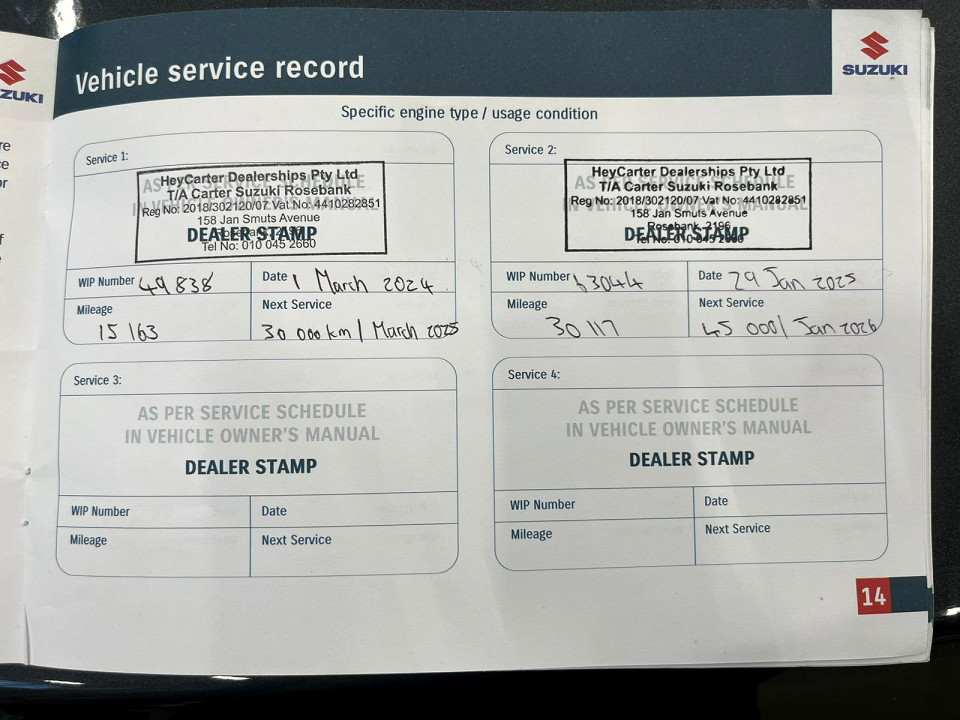 Vehicle service record
SUZUKI
ZUKI
Specific engine type / usage condition
Service 1:
HeyCarter Dealerships Pty Ltd
T/A Carter Suzuki Rosebank
Reg No: 2018/302120/07 Vat No: 4410282851
158 Jan Smuts Avenue
Rosebank, 2196
Tel No: 010 045 2660
AS PER SERVICE SCHEDULE
IN VEHICLE OWNER'S MANUAL
DEALER STAMP
WIP Number 49838
Date 1 March 2024
Mileage
15 163
Next Service
30 000km / March 2025
Service 2:
HeyCarter Dealerships Pty Ltd
T/A Carter Suzuki Rosebank
Reg No: 2018/302120/07 Vat No: 4410282851
158 Jan Smuts Avenue
Rosebank, 2196
Tel No: 010 045
AS PER SERVICE SCHEDULE
IN VEHICLE OWNER'S MANUAL
DEALER STAMP
WIP Number 63044
Date 29 Jan 2025
Mileage
30 117
Next Service
45 000/ Jan 2026
Service 3:
AS PER SERVICE SCHEDULE
IN VEHICLE OWNER'S MANUAL
DEALER STAMP
WIP Number
Date
Mileage
Next Service
Service 4:
AS PER SERVICE SCHEDULE
IN VEHICLE OWNER'S MANUAL
DEALER STAMP
WIP Number
Date
Mileage
Next Service
14